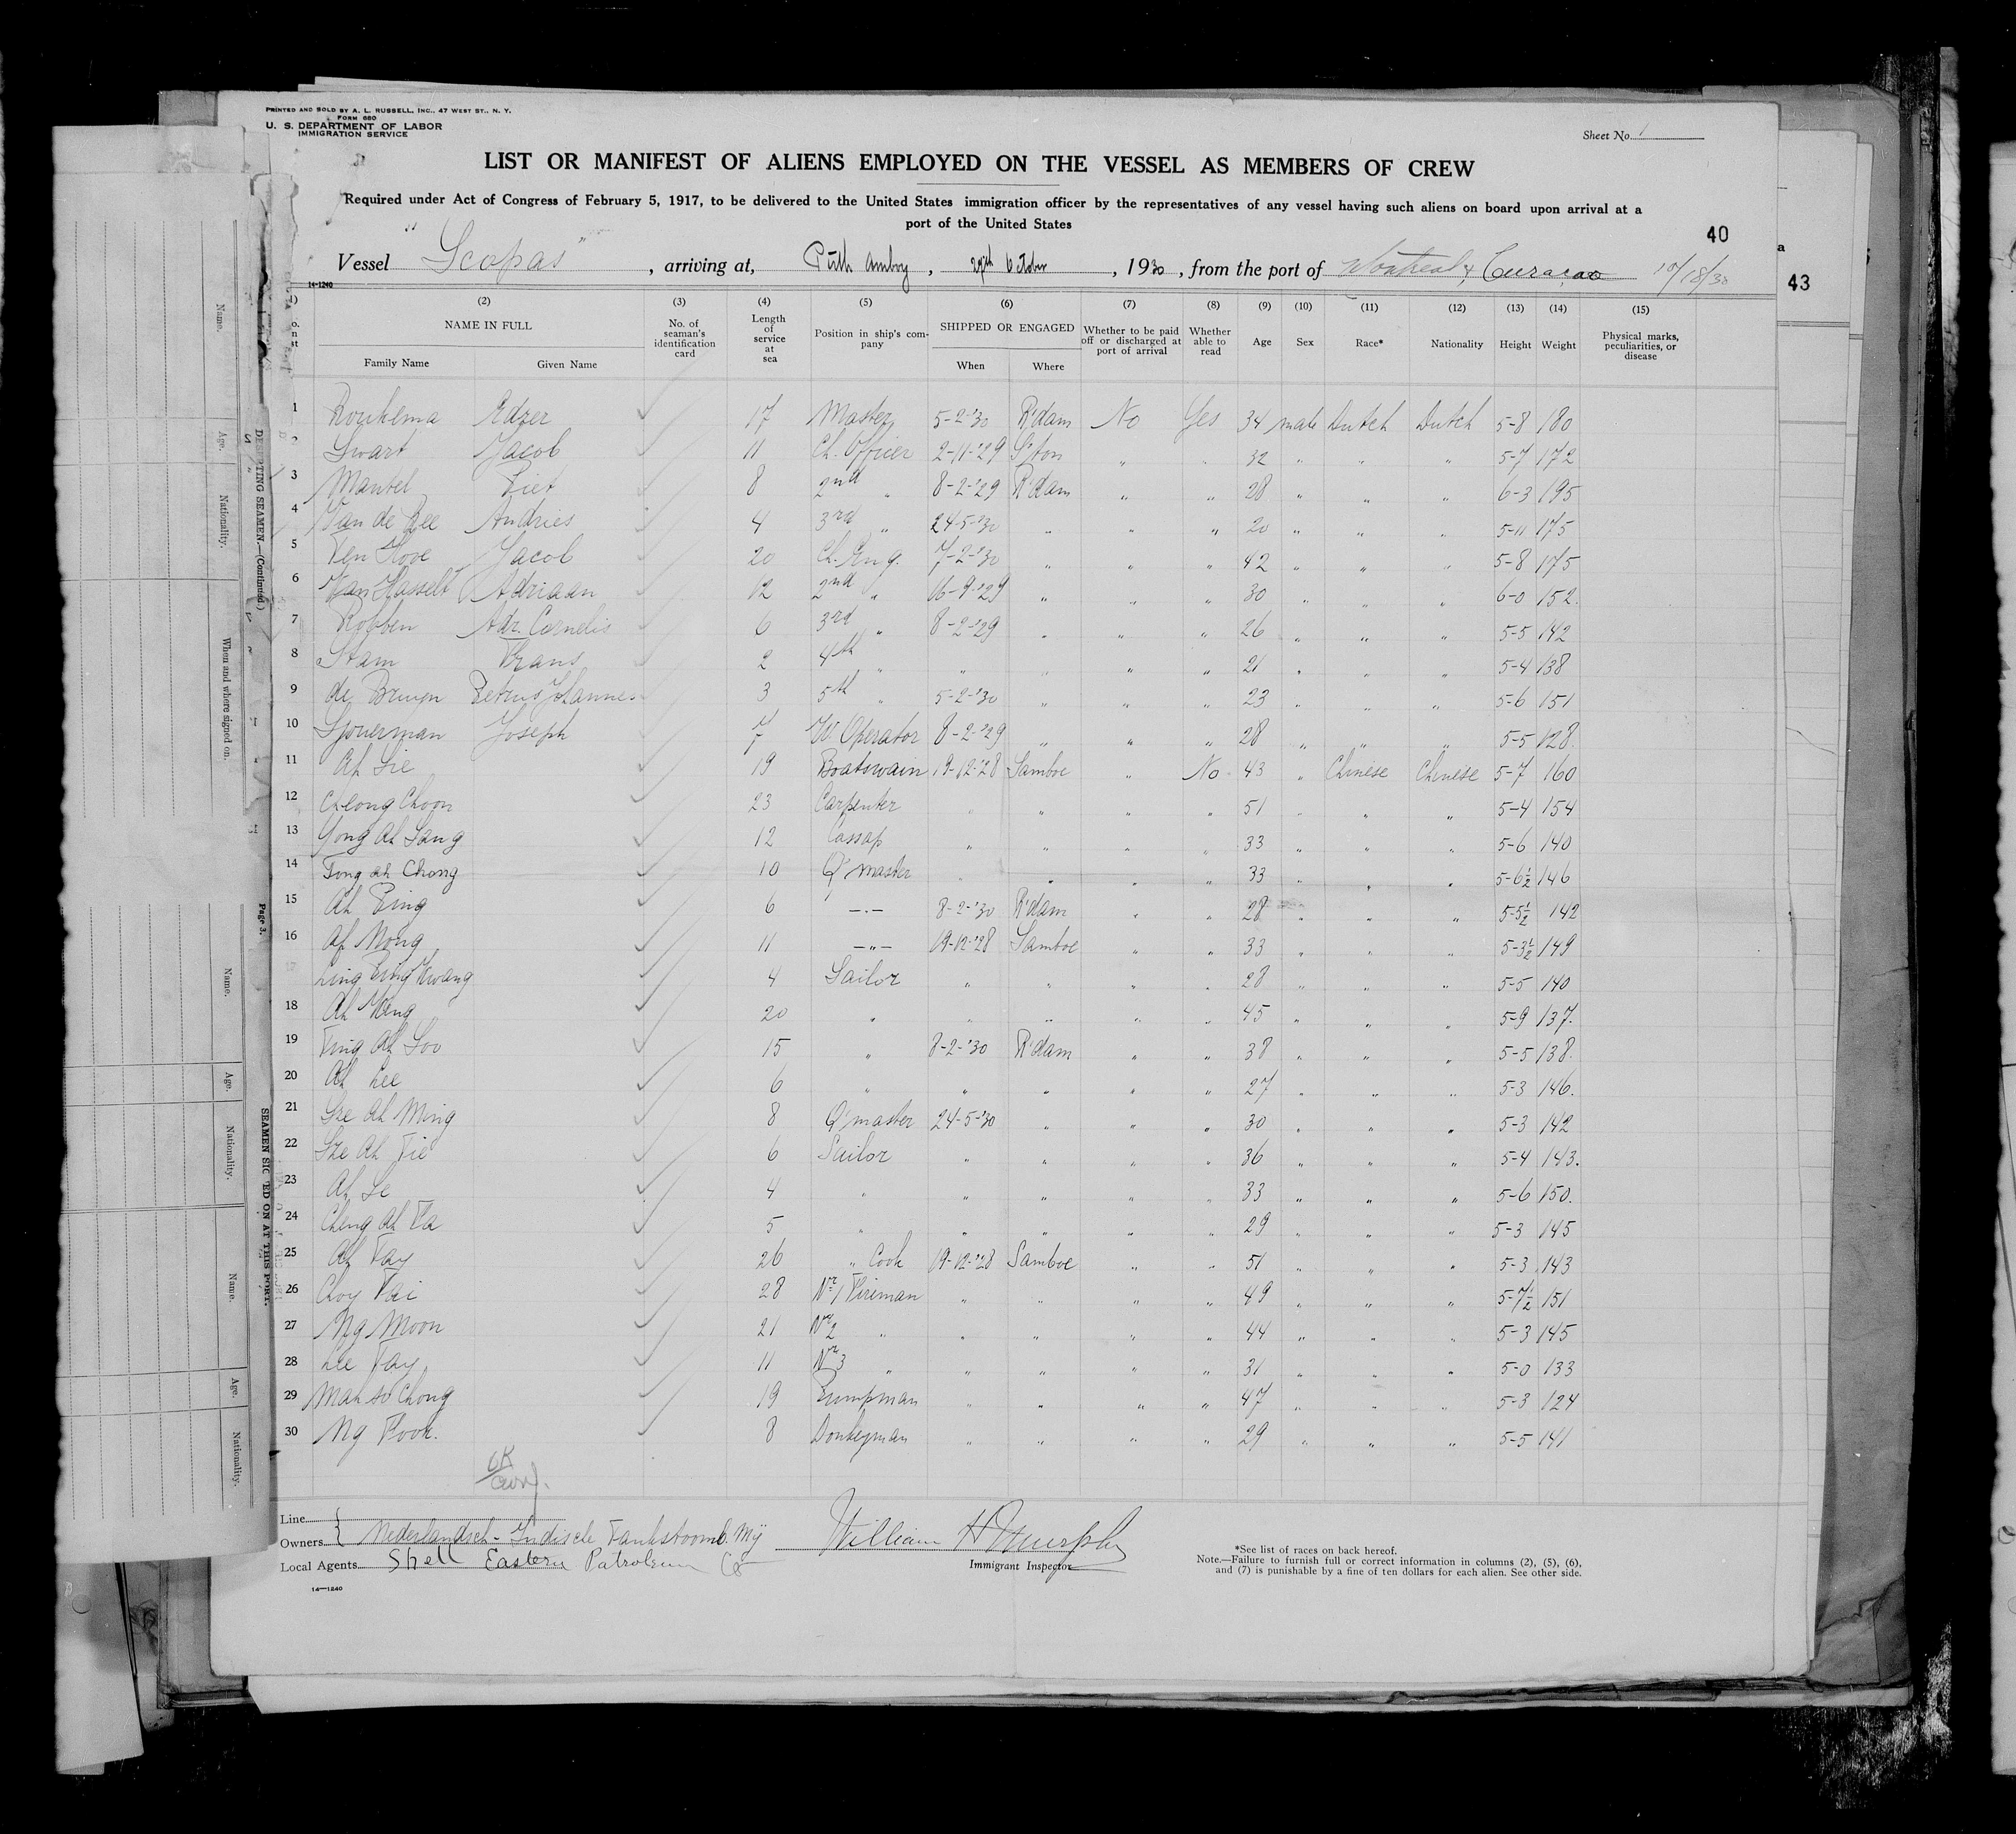 PRINTED AND SOLD BY A. L. RUSSELL, INC., 47 WEST ST., N. Y.
FORM 680
U. S. DEPARTMENT OF LABOR
IMMIGRATION SERVICE
Sheet No. 1
LIST OR MANIFEST OF ALIENS EMPLOYED ON THE VESSEL AS MEMBERS OF CREW
Required under Act of Congress of February 5, 1917, to be delivered to the United States immigration officer by the representatives of any vessel having such aliens on board upon arrival at a
port of the United States
40
Vessel "Scopas", arriving at, Perth Amboy, 29th October, 1930, from the port of Montreal & Curaçao 10/18/30
14-1240
43
(2) (3) (4) (5) (6) (7) (8) (9) (10) (11) (12) (13) (14) (15)
NAME IN FULL No. of seaman's identification card Length of service at sea Position in ship's company SHIPPED OR ENGAGED Whether to be paid off or discharged at port of arrival Whether able to read Age Sex Race* Nationality Height Weight Physical marks, peculiarities, or disease
Family Name Given Name When Where
1 Roukema Edzer 17 Master 5-2-'30 R'dam No Yes 34 male Dutch Dutch 5-8 180
2 Swart Jacob 11 Ch. Officer 2-11-'29 S'ton " " 32 " " " 5-7 172
3 Mantel Piet 8 2nd " 8-2-'29 R'dam " " 28 " " " 6-3 195
4 Van de Zee Andries 4 3rd " 24-5-'30 " " " 20 " " " 5-11 175
5 Ten Hove Jacob 20 Ch. Eng. 7-2-'30 " " " 42 " " " 5-8 175
6 Van Hasselt Adriaan 12 2nd " 16-9-'29 " " " 30 " " " 6-0 152
7 Robben Adr. Cornelis 6 3rd " 8-2-'29 " " " 26 " " " 5-5 142
8 Stam Frans 2 4th " " " " " 21 " 5-4 138
9 de Bruyn Petrus Johannes 3 5th " 5-2-'30 " " " 23 " " " 5-6 151
10 Sjouerman Joseph 7 W. Operator 8-2-'29 " " " 28 " " " 5-5 128
11 Ah Sie 19 Boatswain 19-12-'28 Samboe " No 43 " Chinese Chinese 5-7 160
12 Cheong Choon 23 Carpenter " " " 51 " " " 5-4 154
13 Yong Ah Sang 12 Cassap " " " " 33 " " " 5-6 140
14 Fong ah Chong 10 Q'master " " " " 33 " " " 5-6½ 146
15 Ah Ping 6 -"- 8-2-'30 R'dam " " 28 " " " 5-5½ 142
16 Ah Mong 11 -"- 19-12-'28 Samboe " " 33 " " " 5-3½ 149
Ling Ping Kwang 4 Sailor " " " " 28 " " " 5-5 140
18 Ah Keng 20 " " " " " 45 " " " 5-9 137
19 Ting Ah Soo 15 " 8-2-'30 R'dam " " 38 " " " 5-5 138
20 Ah Lee 6 " " " " " 27 " " " 5-3 146
21 Sze Ah Ming 8 Q'master 24-5-'30 " " " 30 " " " 5-3 142
22 Sze Ah Tie 6 Sailor " " " " 36 " " " 5-4 143
23 Ah Se 4 " " " " " 33 " " " 5-6 150
24 Cheng Ah Fa 5 " " " " " 29 " " " 5-3 145
25 Ah Fay 26 " Cook 19-12-'28 Samboe " " 51 " " " 5-3 143
26 Choy Fai 28 Nr 1 Fireman " " " " 49 " " " 5-7½ 151
27 Ng Moon 21 Nr 2 " " " " " 44 " " " 5-3 145
28 Lee Fay 11 Nr 3 " " " " " 31 " " " 5-0 133
29 Mah so Chong 19 Pumpman " " " " 47 " " " 5-3 124
30 Ng Fook 8 Donkeyman " " " " 29 " " " 5-5 141
OK
Line
Owners Nederlandsch-Indische Tankstoomb. Mij
Local Agents Shell Eastern Petroleum Co
William H Murphy
Immigrant Inspector
*See list of races on back hereof.
Note.—Failure to furnish full or correct information in columns (2), (5), (6),
and (7) is punishable by a fine of ten dollars for each alien. See other side.
14-1240
DESERTING SEAMEN.—(Continued.)
Page 3.
SEAMEN SIGNED ON AT THIS PORT.
Name.
Age.
Nationality.
When and where signed on.
Name.
Age.
Nationality.
Name.
Age.
Nationality.